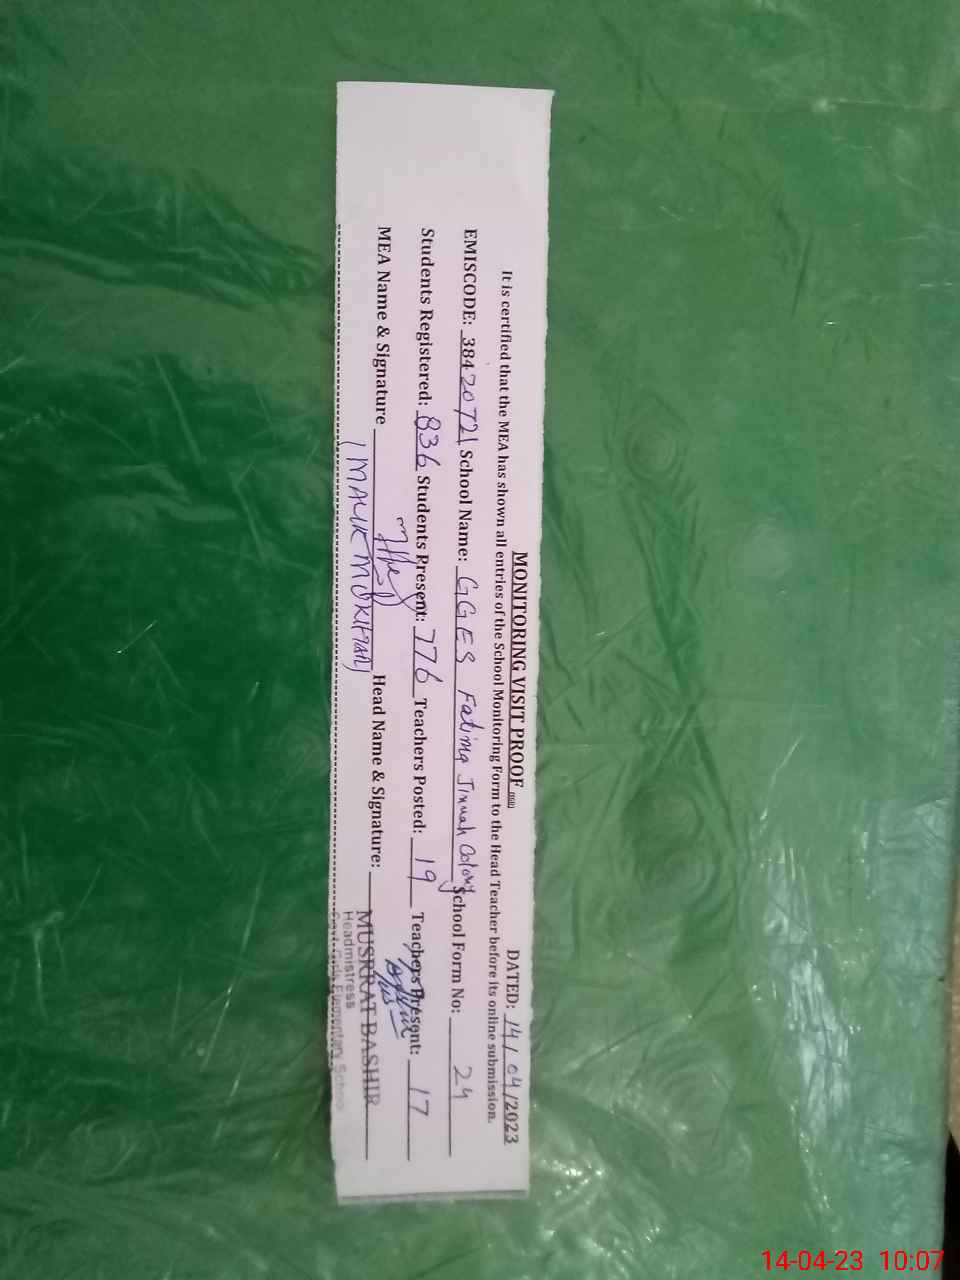 MONITORING VISIT PROOF
DATED: 14/04/2023
It is certified that the MEA has shown all entries of the School Monitoring Form to the Head Teacher before its online submission.
EMISCODE: 38420721 School Name: GGES Fatima Jinnah Colony School Form No: 24
Students Registered: 836 Students Present: 776 Teachers Posted: 19 Teachers Present: 17
MEA Name & Signature Head Name & Signature:
MUSRRAT BASHIR
Headmistress
Govt. Girls Elementary School
14-04-23 10:07